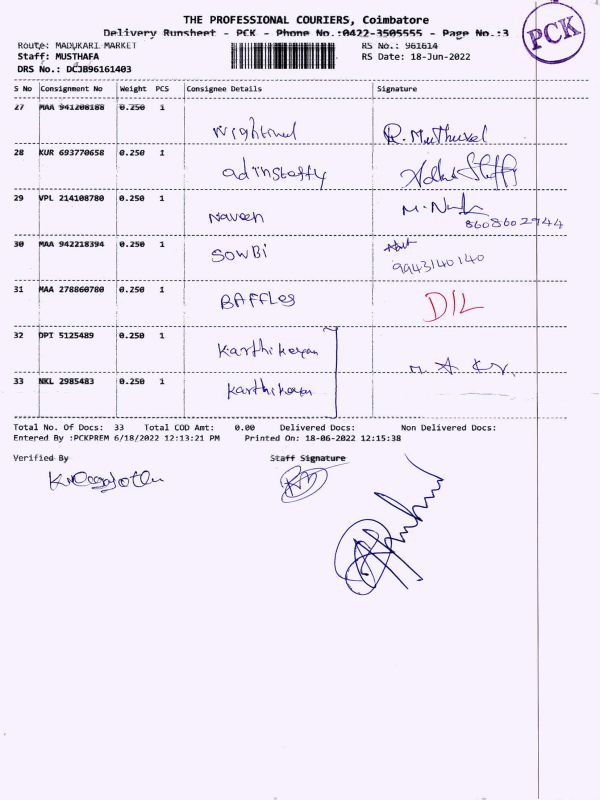 THE PROFESSIONAL COURIERS, Coimbatore
Delivery Runsheet - PCK - Phone No.:0422-3505555 - Page No.:3
PCK
Route: MADUKARI MARKET RS No.: 961614
Staff: MUSTHAFA RS Date: 18-Jun-2022
DRS No.: DCJB96161403
S No Consignment No Weight PCS Consignee Details Signature
27 MAA 941208188 0.250 1
R. Muthuvel
28 KUR 693770658 0.250 1
29 VPL 214108780 0.250 1
Naveen 8608602944
30 MAA 942218394 0.250 1
SOWBI 9943140140
31 MAA 278860780 0.250 1
BAFFLES D/L
32 DPI 5125489 0.250 1
Karthikeyan
33 NKL 2985483 0.250 1
Karthikeyan
Total No. Of Docs: 33 Total COD Amt: 0.00 Delivered Docs: Non Delivered Docs:
Entered By :PCKPREM 6/18/2022 12:13:21 PM Printed On: 18-06-2022 12:15:38
Verified By Staff Signature